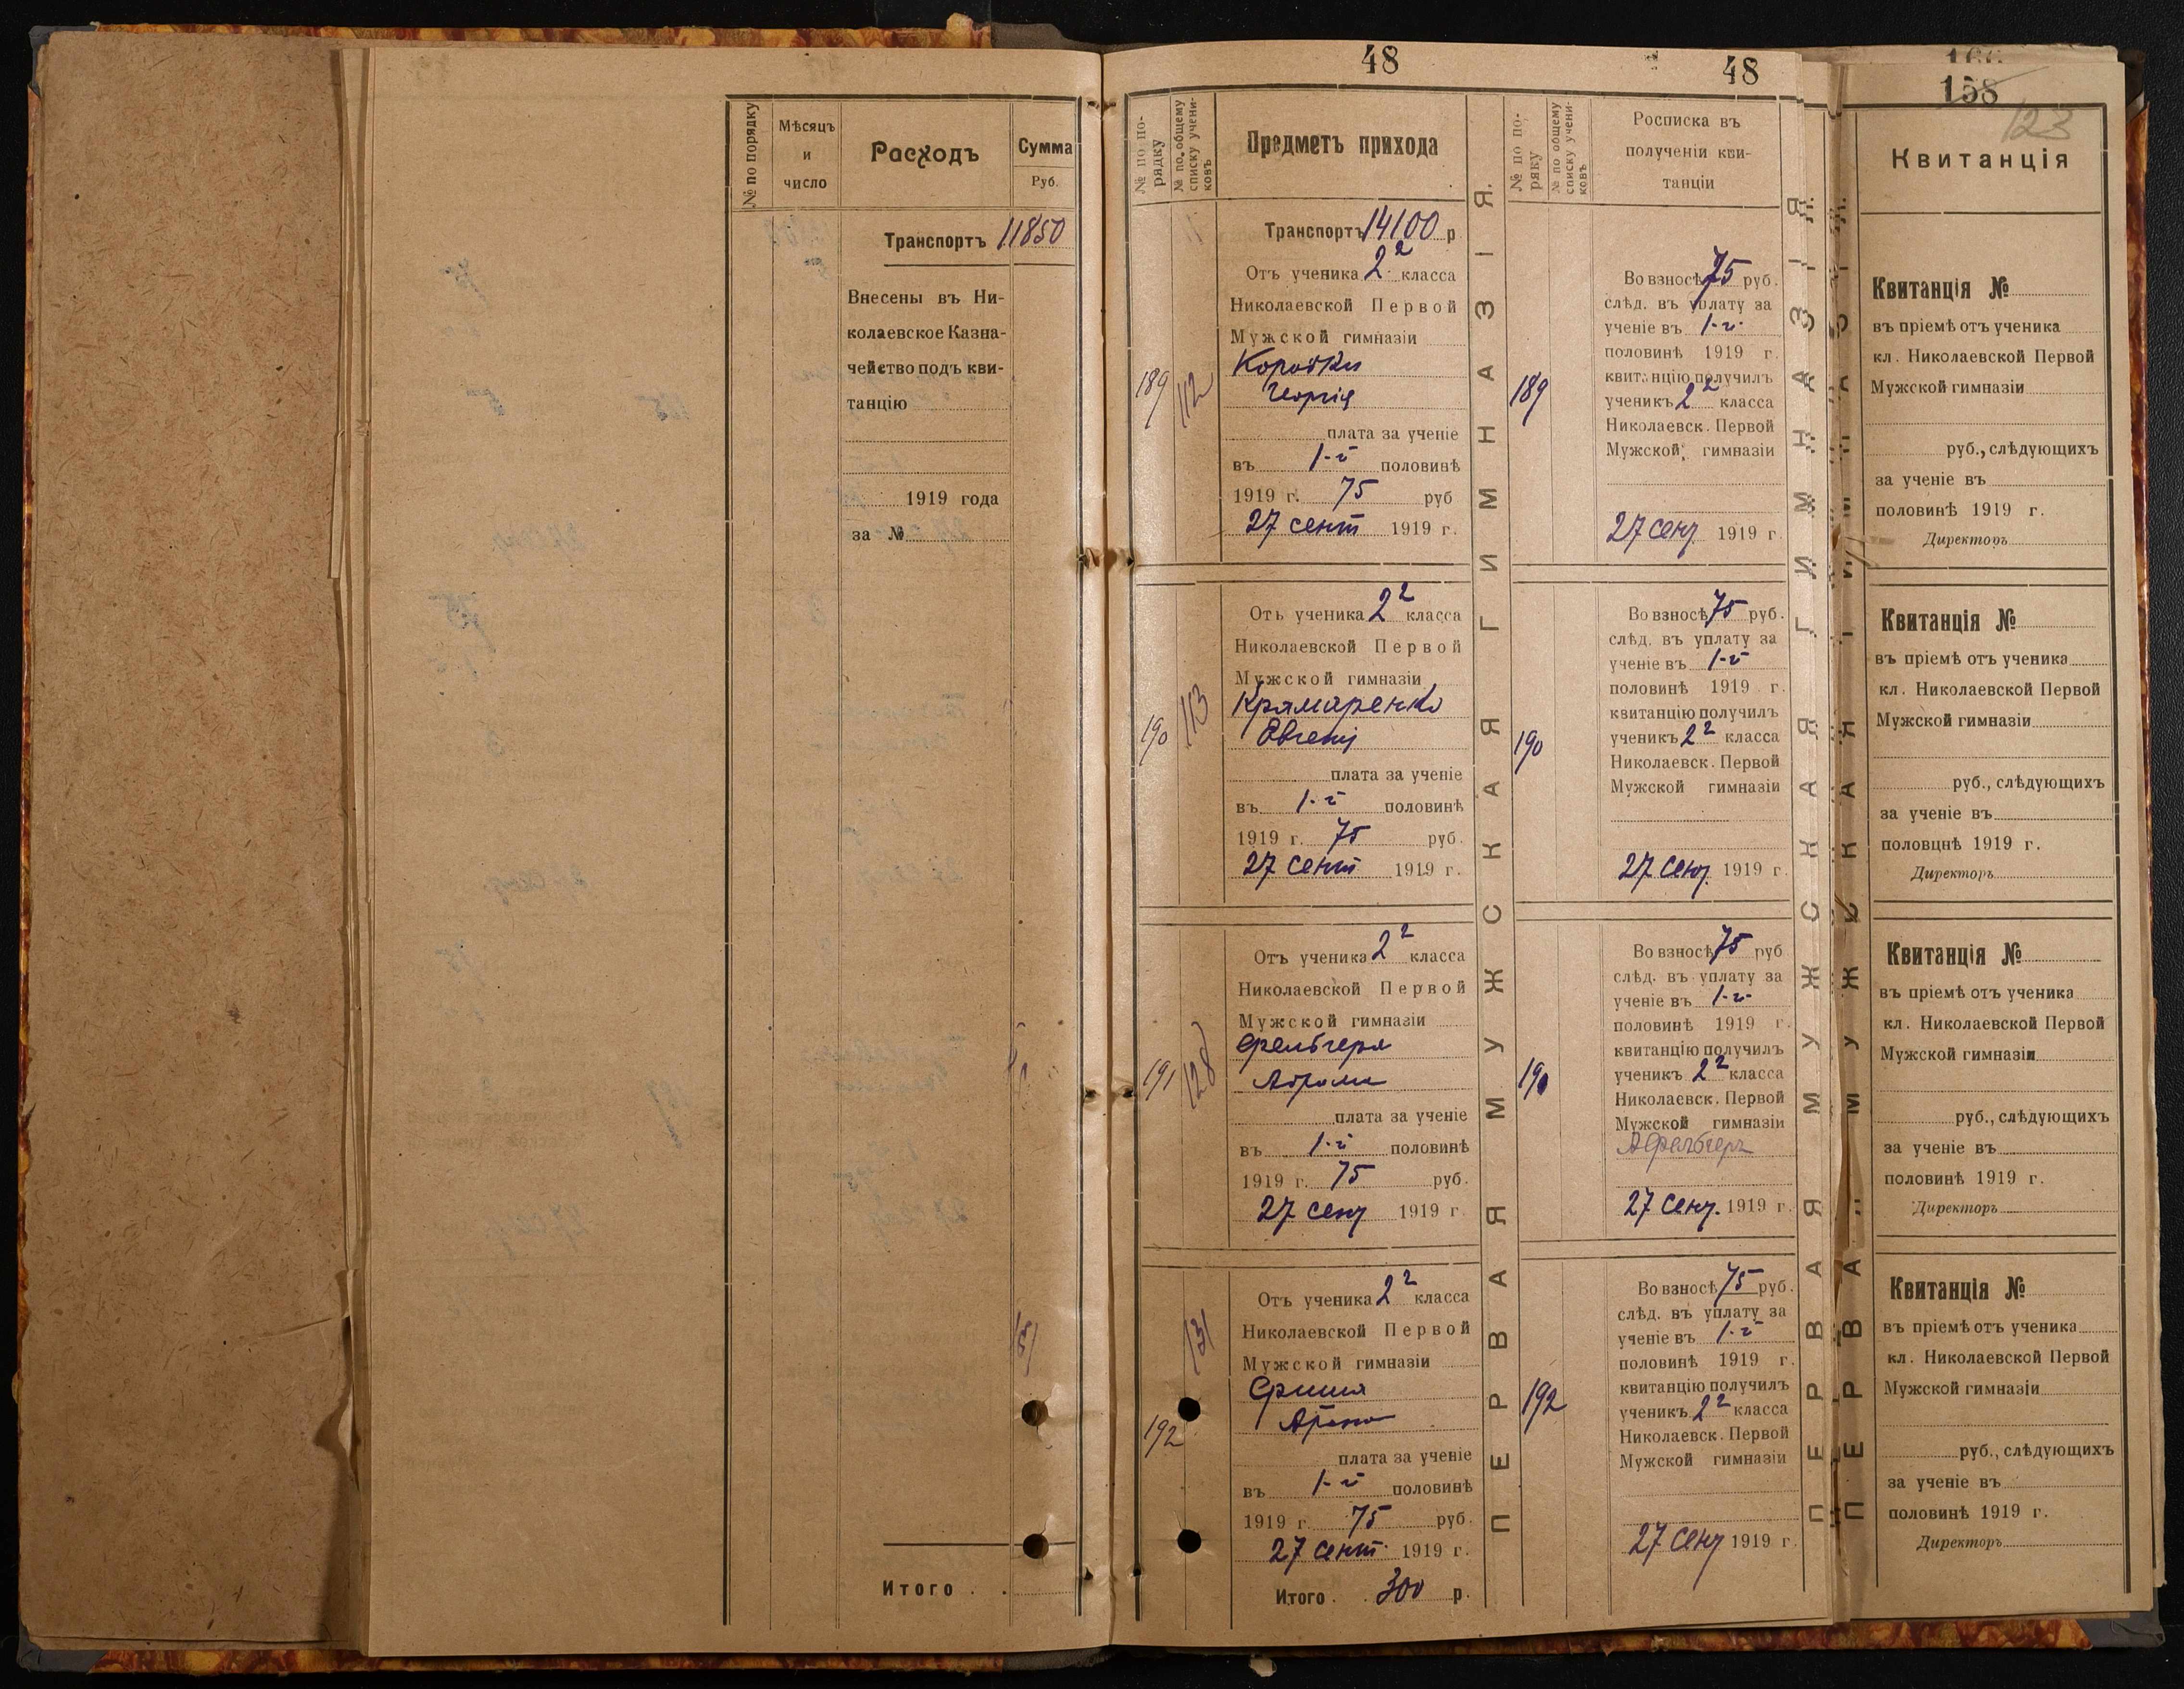 № по порядку
Мѣсяцъ
и
число
Расходъ
Сумма
Руб.
Транспортъ 11850
Внесены въ Ни-
колаевское Казна-
чейство подъ кви-
танцію
1919 года
за №
Итого . .
48
№ по по-
рядку
№ по общему
списку учени-
ковъ
Предметъ прихода
Транспортъ 14100 р
189
112
Отъ ученика 2² класса
Николаевской Первой
Мужской гимназіи
Коробки
Георгія
плата за ученіе
въ 1-й половинѣ
1919 г. 75 руб
27 сент 1919 г.
190
113
Отъ ученика 2² класса
Николаевской Первой
Мужской гимназіи
Крамаренко
Евгенія
плата за ученіе
въ 1-й половинѣ
1919 г. 75 руб.
27 сент 1919 г.
191
128
Отъ ученика 2² класса
Николаевской Первой
Мужской гимназіи
Абрама
плата за ученіе
въ 1-й половинѣ
1919 г. 75 руб.
27 сен 1919 г
192
131
Отъ ученика 2² класса
Николаевской Первой
Мужской гимназіи
плата за ученіе
въ 1-й половинѣ
1919 г. 75 руб.
27 сент. 1919 г.
Итого . . 300 р.
ПЕРВАЯ МУЖСКАЯ ГИМНАЗІЯ.
48
№ по по-
ряку
№ по общему
списку учени-
ковъ
Росписка въ
полученіи кви-
танціи
189
Во взносѣ 75 руб.
слѣд. въ уплату за
ученіе въ 1-й
половинѣ 1919 г.
квитанцію получилъ
ученикъ 2² класса
Николаевск. Первой
Мужской гимназіи
27 сен 1919 г.
190
Во взносѣ 75 руб.
слѣд. въ уплату за
ученіе въ 1-й
половинѣ 1919 г.
квитанцію получилъ
ученикъ 2² класса
Николаевск. Первой
Мужской гимназіи
27 сен. 1919 г.
191
Во взносѣ 75 руб
слѣд. въ уплату за
ученіе въ 1-й
половинѣ 1919 г.
квитанцію получилъ
ученикъ 2² класса
Николаевск. Первой
Мужской гимназіи
27 сен. 1919 г.
192
Во взносѣ 75 руб.
слѣд. въ уплату за
ученіе въ 1-й
половинѣ 1919 г.
квитанцію получилъ
ученикъ 2² класса
Николаевск. Первой
Мужской гимназіи
27 сен 1919 г.
ПЕРВАЯ МУЖСКАЯ ГИМНАЗІЯ
158
123
Квитанція
Квитанція №
въ пріемѣ отъ ученика
кл. Николаевской Первой
Мужской гимназіи
руб., слѣдующихъ
за ученіе въ
половинѣ 1919 г.
Директоръ
Квитанція №
въ пріемѣ отъ ученика
кл. Николаевской Первой
Мужской гимназіи
руб., слѣдующихъ
за ученіе въ
половцнѣ 1919 г.
Директоръ
Квитанція №
въ пріемѣ отъ ученика
кл. Николаевской Первой
Мужской гимназіи
руб., слѣдующихъ
за ученіе въ
половинѣ 1919 г.
Директоръ
Квитанція №
въ пріемѣ отъ ученика
кл. Николаевской Первой
Мужской гимназіи
руб., слѣдующихъ
за ученіе въ
половинѣ 1919 г.
Директоръ